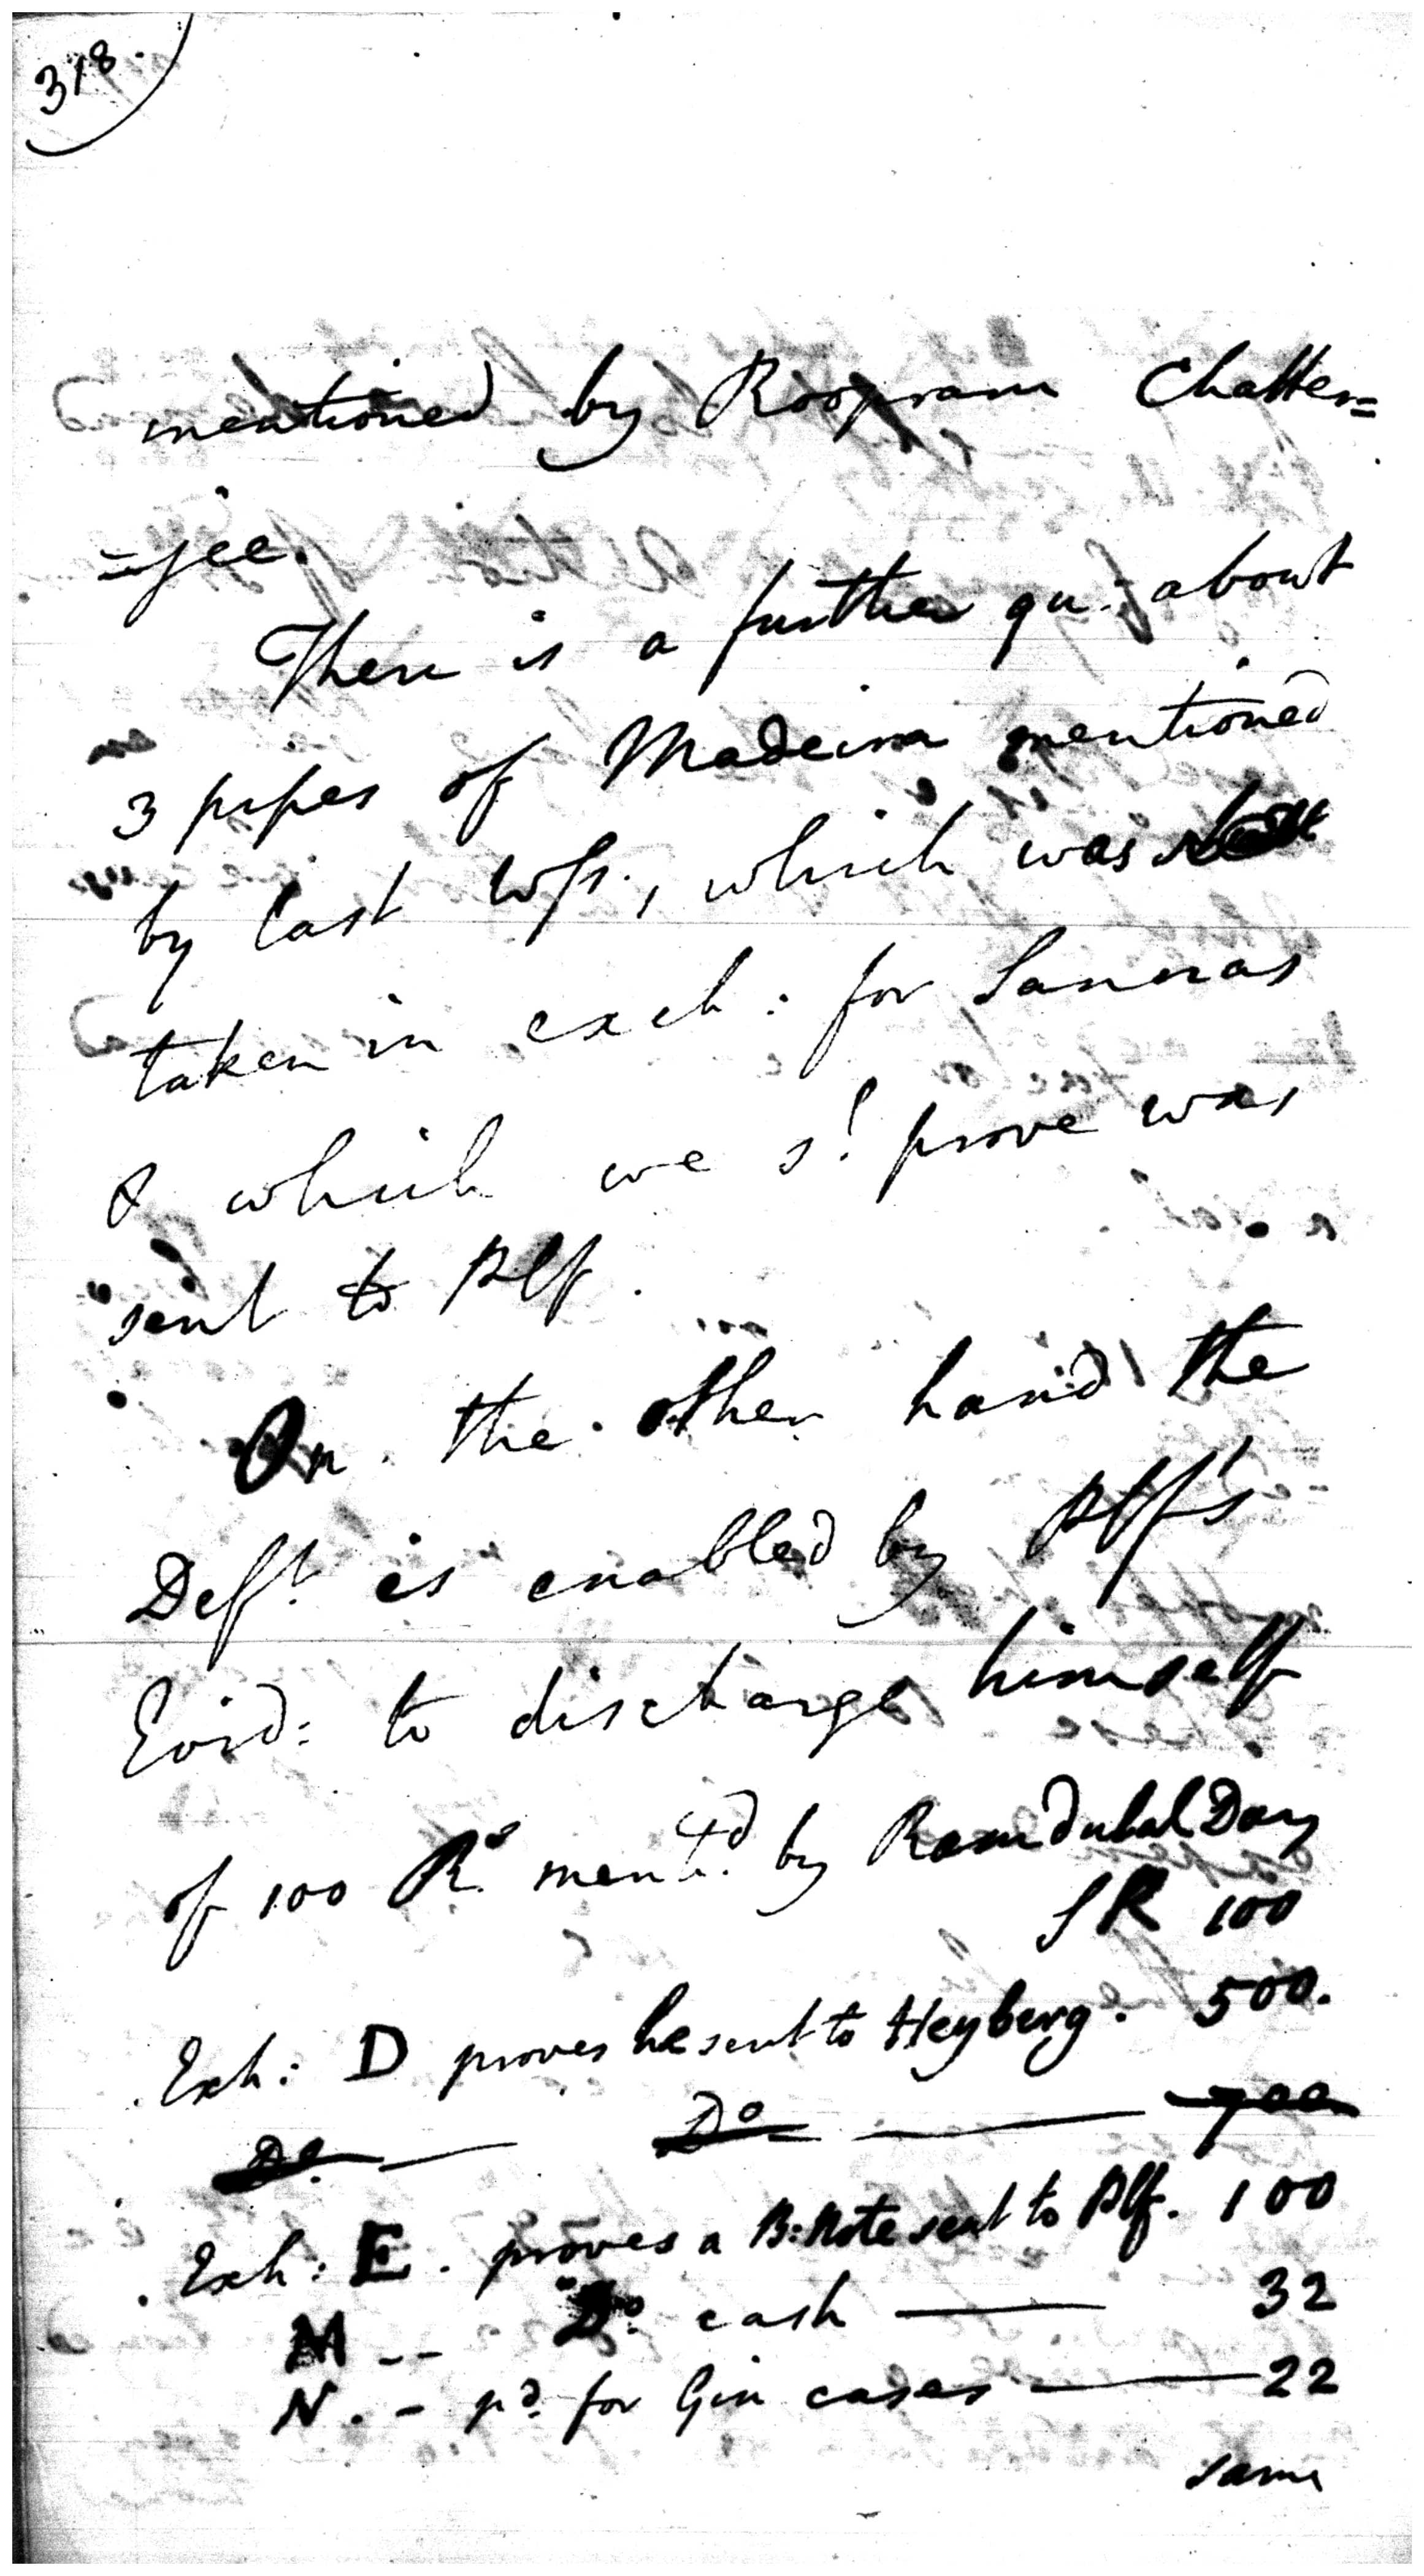 318.
mentioned by Roopram Chatter=
=jee.
There is a further qu: about
3 pipes of Madeira mentioned
by last Wss., which was
taken in exch: for Sannas
& which we sd. prove was
sent to Plf.
On the other hand the
Deft. is enabled by Plf's
Evid: to discharge himself
of 100 Rs. mentd. by Ramdulal Day
SR 100
Exh: D proves he sent to Heyberg. 500.
Do. — Do — 700
Exh: E. proves a B: Note sent to Plf. 100
M -- Do. cash — 32
N. - pd. for Gin cases — 22
same